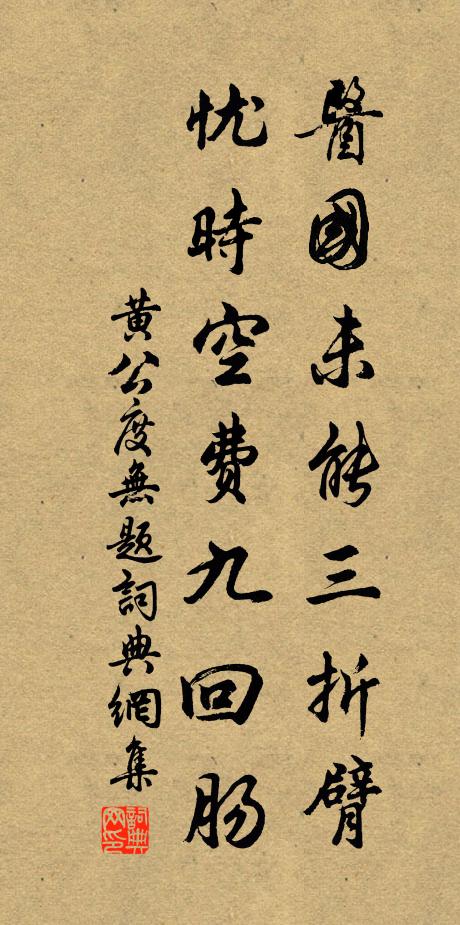 醫國未能三折臂
忧時空費九回肠
黄公度無题詞典網集
詞典網印